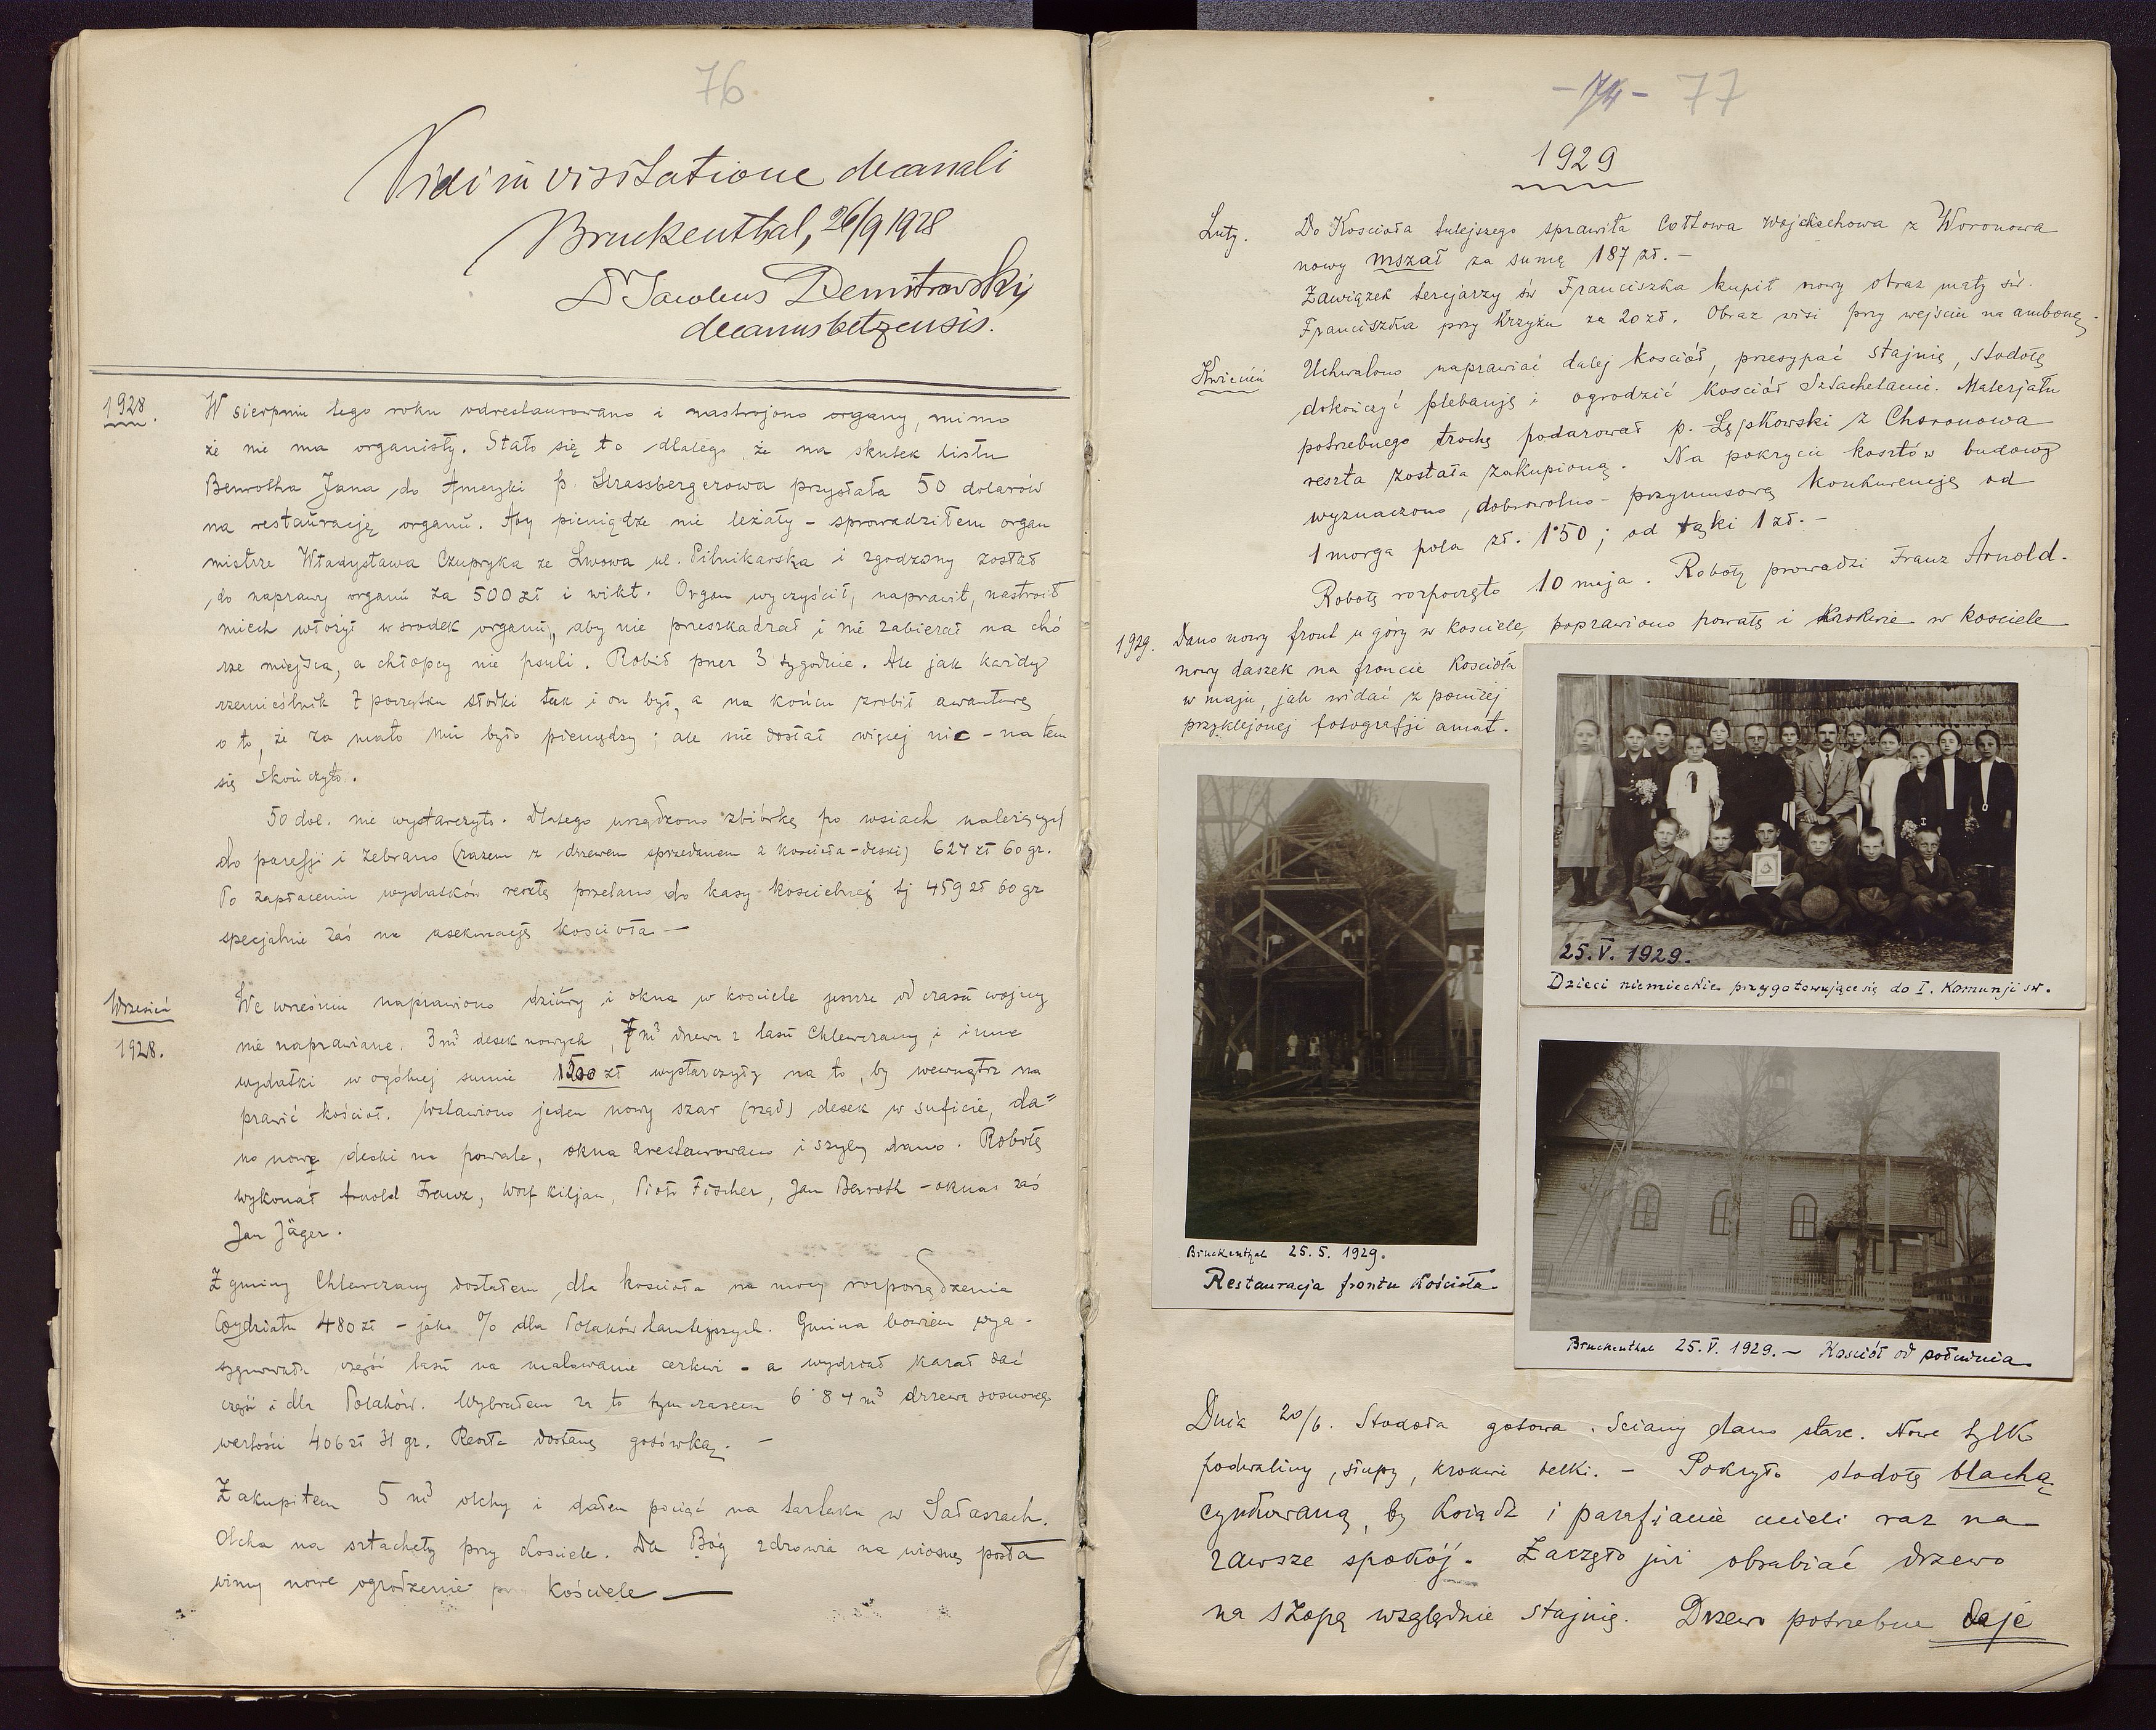 76
Vidi in visitatione decanali
Bruckenthal, 26/9 1928
Dr Jacobus Demitrowski
decanus belzensis.
1928.
W sierpniu tego roku odrestaurowano i nastrojono organy, mimo
że nie ma organisty. Stało się to dlatego, że na skutek listu
Benrotha Jana do Ameryki p. Strassbergerowa przysłała 50 dolarów
na restaurację organu. Aby pieniądze nie leżały - sprowadziłem organ
mistrza Władysława Czupryka ze Lwowa ul. Pilnikarska i zgodzony został
do naprawy organu za 500 zł i wikt. Organ wyczyścił, naprawił, nastroił
miech włożył w środek organu, aby nie przeszkadzał i nie zabierał na chó
rze miejsca, a chłopcy nie psuli. Robił przez 3 tygodnie. Ale jak każdy
rzemieślnik z początku słodki tak i on był, a na końcu zrobił awanturę
o to, że za mało mu było pieniędzy; ale nie dostał więcej nic - na tem
się skończyło.
50 dol. nie wystarczyło. Dlatego urządzono zbiórkę po wsiach należących
do parafji i zebrano (razem z drzewem sprzedanem z kościoła - deski) 627 zł 60 gr.
Po zapłaceniu wydatków resztę przelano do kasy kościelnej tj 459 zł 60 gr
specjalnie zaś na asekurację kościoła —
Wrzesień
1928.
We wrześniu naprawiono dziury i okna w kościele jeszcze od czasu wojny
nie naprawiane. 3 m³ desek nowych, 7 m³ drzewa z lasu Chlewczany, i inne
wydatki w ogólnej sumie 1200 zł wystarczyły na to, by wewnątrz na
prawić kościół. Wstawiono jeden nowy szar (rząd) desek w suficie, da=
no nowe deski na powale, okna zrestaurowano i szyby dano. Robotę
wykonał Arnold Franz, Wolf Kiljan, Piotr Fischer, Jan Benroth - okna zaś
Jan Jäger.
Z gminy Chlewczany dostałem dla kościoła na mocy rozporządzenia
Wydziału 480 zł - jako % dla Polaków tamtejszych. Gmina bowiem wya-
sygnowała część lasu na malowanie cerkwi - a wydział kazał dać
część i dla Polaków. Wybrałem za to tymczasem 6˙84 m³ drzewa sosnowego
wartości 406 zł 31 gr. Resztę dostanę gotówką. —
Zakupiłem 5 m³ olchy i dałem pociąć na tartaku w Sałaszach.
Olcha na sztachety przy kościele. Da Bóg zdrowia na wiosnę posta
wimy nowe ogrodzenie przy kościele —
- 74 - 77
1929
Luty.
Do Kościoła tutejszego sprawiła Cottowa Wojciechowa z Woronowa
nowy mszał za sumę 187 zł. -
Zawiązek tercjarzy św Franciszka kupił nowy obraz mały św.
Franciszka przy Krzyżu za 20 zł. Obraz wisi przy wejściu na ambonę.
Kwiecień
Uchwalono naprawiać dalej kościół, przesypać stajnię, stodołę
dokończyć plebanję i ogrodzić kościół sztachetami. Materjału
potrzebnego trochę podarował p. Łępkowski z Choronowa
reszta została zakupioną. Na pokrycie kosztów budowy
wyznaczono, dobrowolno - przymusową konkurencję od
1 morga pola zł. 1˙50; od łąki 1 zł. -
Robotę rozpoczęto 10 maja. Roboty prowadzi Franz Arnold.
1929.
Dano nowy front u góry w kościele, poprawiono powałę i krokwie w kościele
nowy daszek na froncie kościoła
w maju, jak widać z poniżej
przyklejonej fotografji amat.
25. V. 1929.
Dzieci niemieckie przygotowujące się do I. Komunji św.
Bruckenthal 25. 5. 1929.
Restauracja frontu Kościoła.
Bruckenthal 25. V. 1929. - Kościół od południa
Dnia 20/6. Stodoła gotowa. Ściany dano stare. Nowe tylko
podwaliny, słupy, krokwi belki. - Pokryto stodołę blachą
cynkowaną, by ksiądz i parafjanie mieli raz na
zawsze spokój. Zaczęto już obrabiać drzewo
na szopę względnie stajnię. Drzewo potrzebne daje